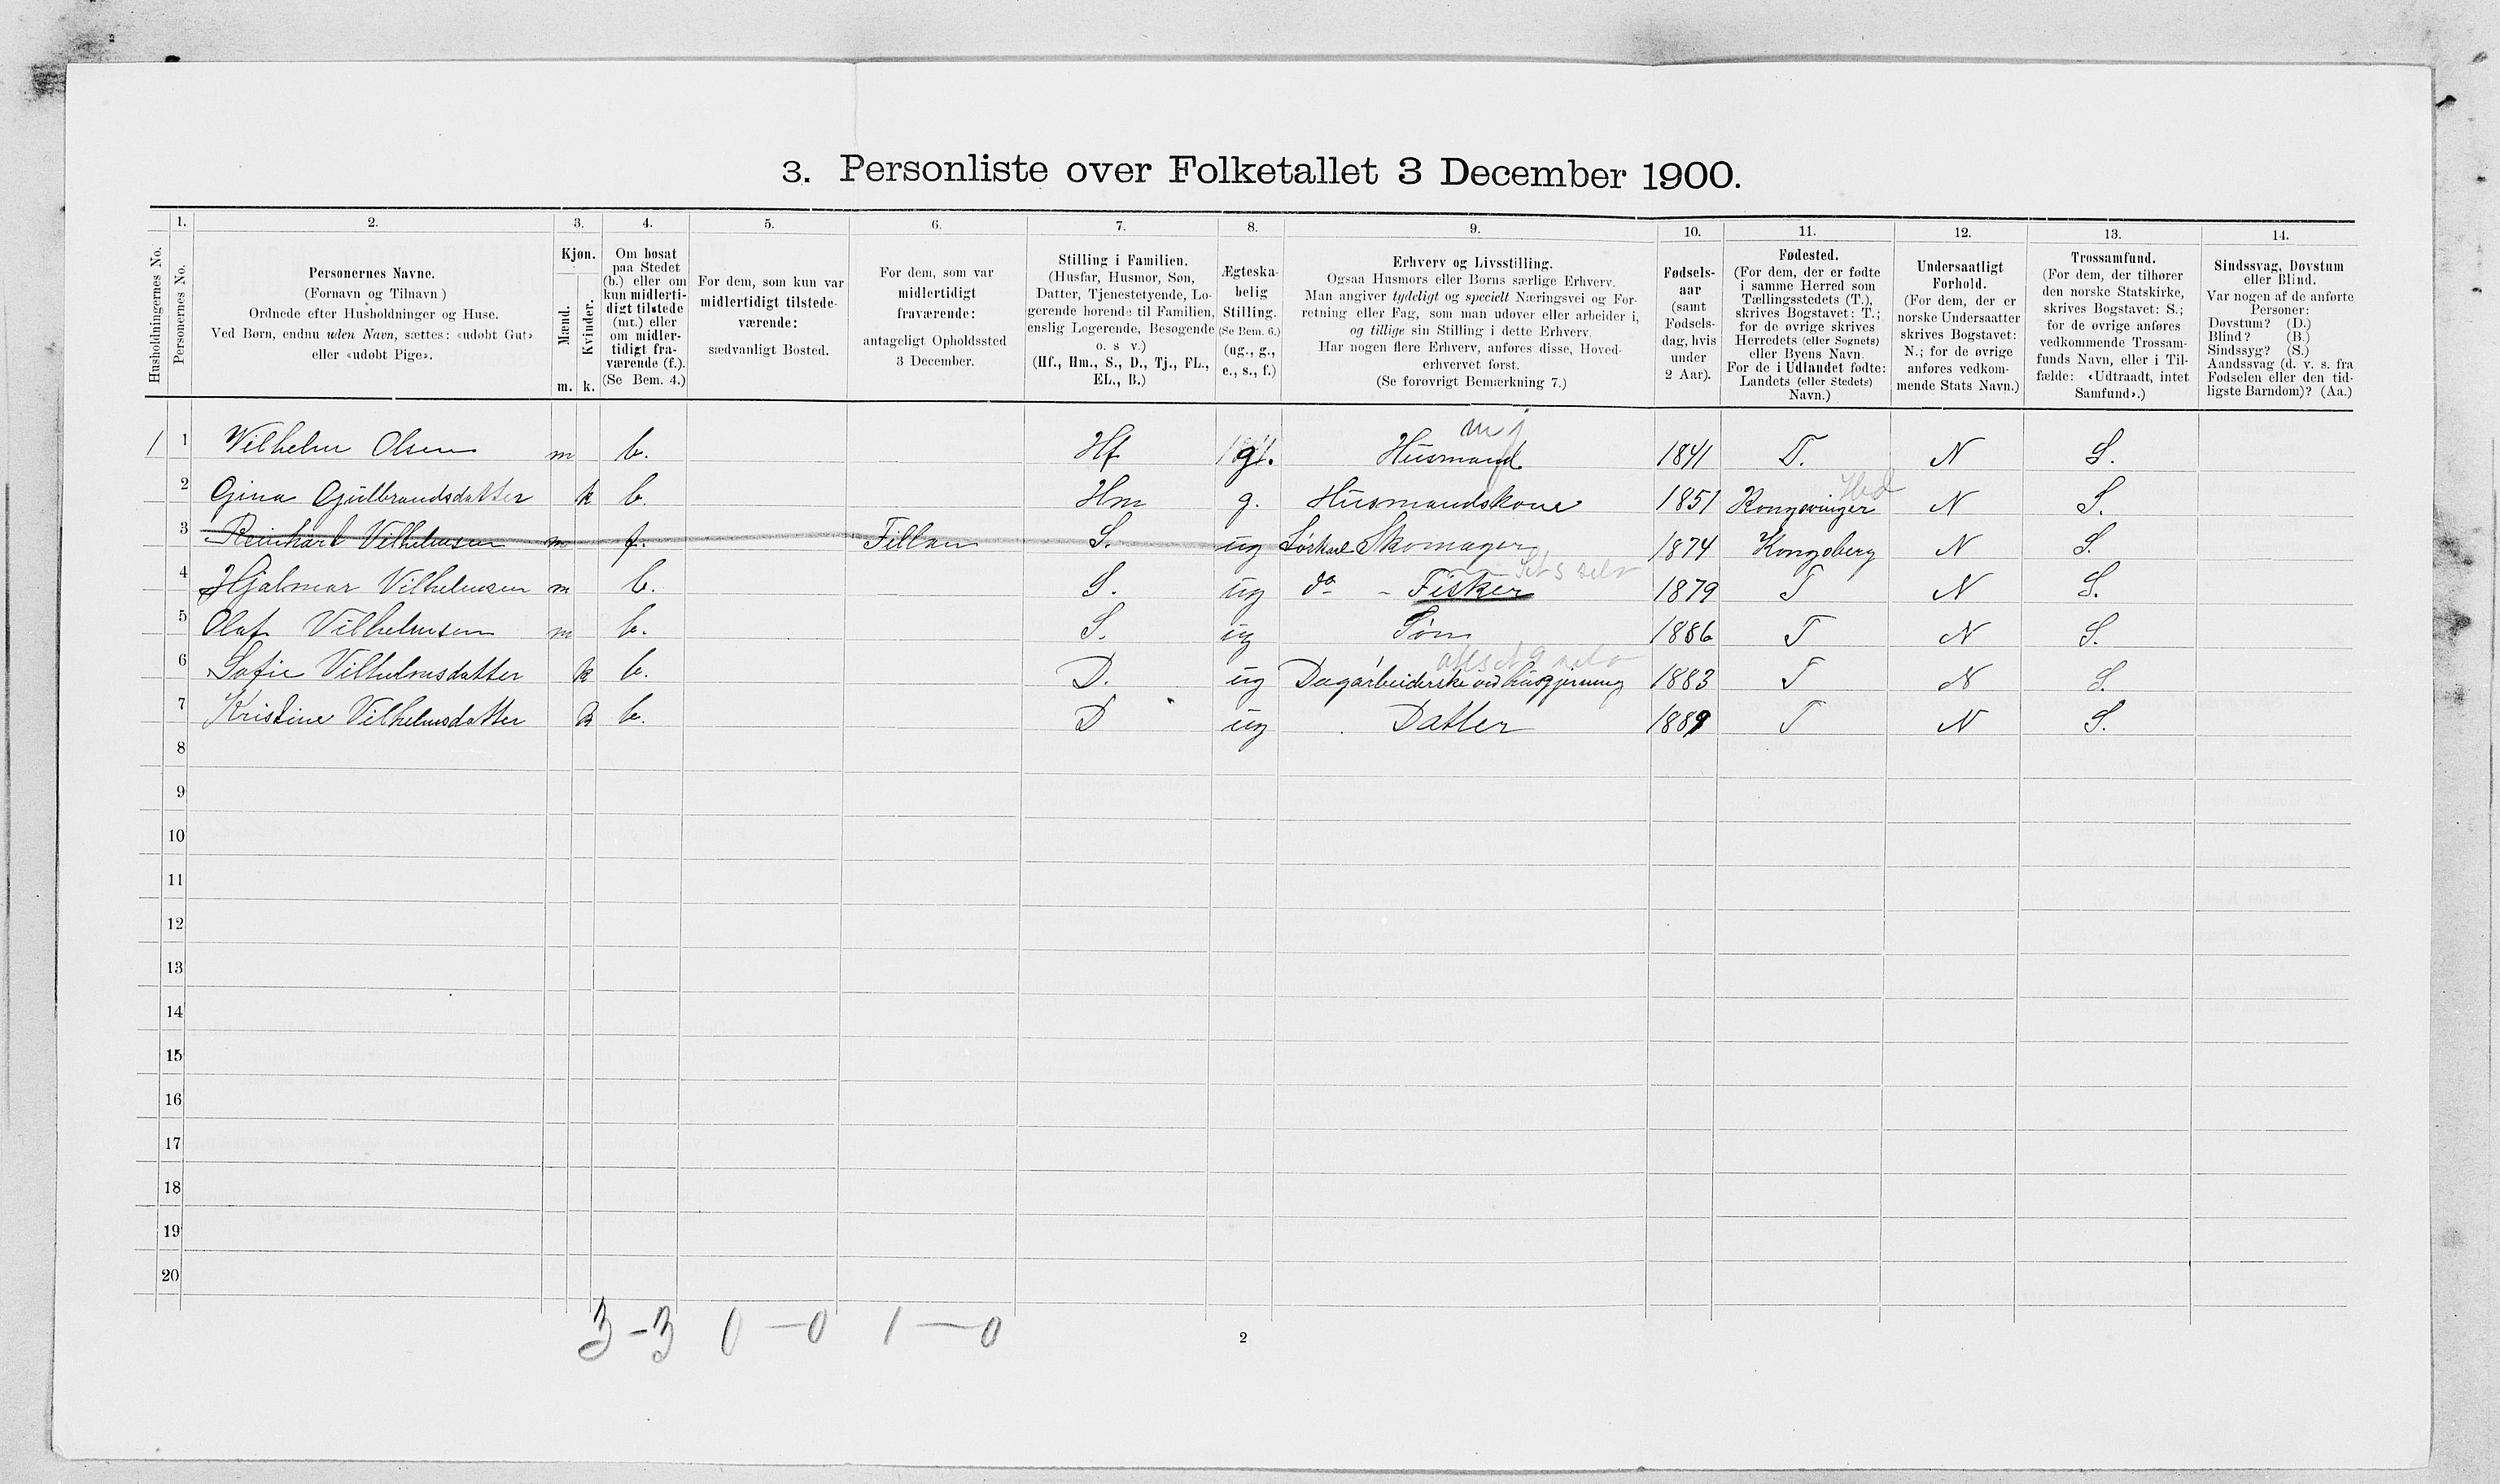 3. Personliste over Folketallet 3 December 1900.
Husholdningernes No.
1.
Personernes No.
2.
Personernes Navne.
(Fornavn og Tilnavn)
Ordnede efter Husholdninger og Huse.
Ved Børn, endnu uden Navn, sættes: «udøbt Gut»
eller «udøbt Pige».
3.
Kjøn.
Mænd.
m.
Kvinder.
k.
4.
Om bosat
paa Stedet
(b.) eller om
kun midlerti-
digt tilstede
(mt.) eller
om midler-
tidigt fra-
værende (f.).
(Se Bem. 4.)
5.
For dem, som kun var
midlertidigt tilstede-
værende:
sædvanligt Bosted.
6.
For dem, som var
midlertidigt
fraværende:
antageligt Opholdssted
3 December.
7.
Stilling i Familien.
(Husfar, Husmor, Søn,
Datter, Tjenestetyende, Lo-
gerende hørende til Familien,
enslig Logerende, Besøgende
o. s v.)
(Hf., Hm., S., D., Tj., FL.,
EL., B.)
8.
Ægteska-
belig
Stilling.
(Se Bem. 6.)
(ug., g.,
e., s., f.)
9.
Erhverv og Livsstilling.
Ogsaa Husmors eller Børns særlige Erhverv.
Man angiver tydeligt og specielt Næringsvei og For-
retning eller Fag, som man udøver eller arbeider i,
og tillige sin Stilling i dette Erhverv.
Har nogen flere Erhverv, anføres disse, Hoved-
erhvervet først.
(Se forøvrigt Bemærkning 7.)
10.
Fødsels-
aar
(samt
Fødsels-
dag, hvis
under
2 Aar).
11.
Fødested.
(For dem, der er fødte
i samme Herred som
Tællingsstedets (T.),
skrives Bogstavet: T.;
for de øvrige skrives
Herredets (eller Sognets)
eller Byens Navn.
For de i Udlandet fødte:
Landets (eller Stedets)
Navn.)
12.
Undersaatligt
Forhold.
(For dem, der er
norske Undersaatter
skrives Bogstavet:
N.; for de øvrige
anføres vedkom-
mende Stats Navn.)
13.
Trossamfund.
(For dem, der tilhører
den norske Statskirke,
skrives Bogstavet: S.;
for de øvrige anføres
vedkommende Trossam-
funds Navn, eller i Til-
fælde: «Udtraadt, intet
Samfund».)
14.
Sindssvag, Døvstum
eller Blind.
Var nogen af de anførte
Personer:
Døvstum? (D.)
Blind? (B.)
Sindssyg? (S.)
Aandssvag (d. v. s. fra
Fødselen eller den tid-
ligste Barndom)? (Aa.)
1 1 Wilhelm Olsen m b. Hf g. Husmand 1841 T. N S.
2 Gina Gulbrandsdatter k b. Hm g. Husmandskone 1851 Kongsvinger N S.
3 Reinhart Vilhelmsen m f. Fillan S. ug Løskarl Skomager 1874 Kongsberg N S.
4 Hjalmar Vilhelmsen m b. S. ug do - Fisker 1879 T N S.
5 Olaf Vilhelmsen m b. S. ug Søn 1886 T N S.
6 Sofie Vilhelmsdatter k b. D. ug Dagarbeiderske ved husgjerning 1883 T N S.
7 Kristine Vilhelmsdatter k b. D ug Datter 1889 T N S.
8
9
10
11
12
13
14
15
16
17
18
19
20
3 - 3 0 — 0 1 — 0
2